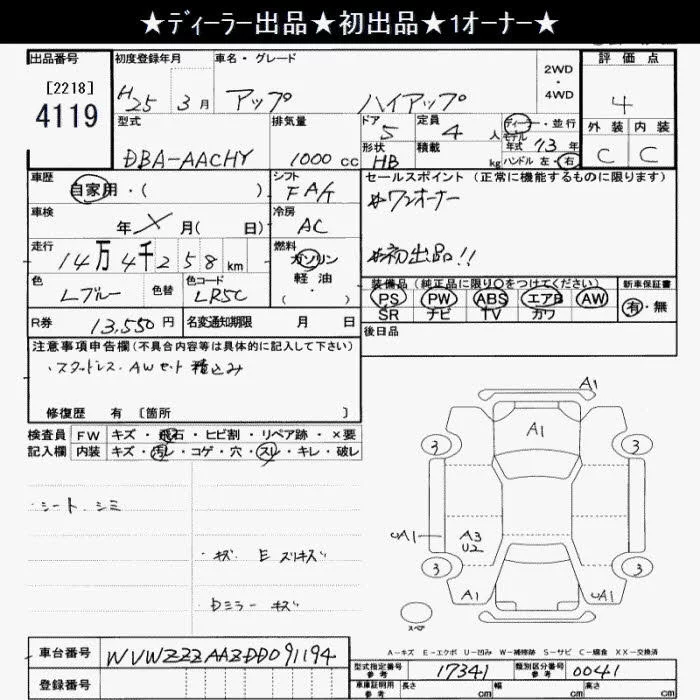 ★ﾃﾞｨｰﾗｰ出品★初出品★1ｵｰﾅｰ★
出品番号
[2218]
4119
初度登録年月
H25 3月
車名・グレード
アップ ハイアップ
2WD
・
4WD
評価点
4
外装 内装
C C
型式
DBA-AACHY
排気量
1000 cc
ドア
5
定員
4 人
形状
HB
積載
kg
ディーラー・並行
モデル
年式 '13 年
ハンドル 左・右
車歴
自家用・( )
シフト
FA/T
車検
年 × 月( 日)
冷房
AC
走行
14万4千258km
燃料
ガソリン
軽油
・( )
色
Lブルー
色替
色コード
LR5C
R券
13,550円
名変通知期限 月 日
セールスポイント (正常に機能するものに限ります)
#ワンオーナー
#初出品!!
装備品(純正品に限り○をつけてください)
PS PW ABS エアB AW
SR ナビ TV カワ
新車保証書
有・無
後日品
注意事項申告欄(不具合内容等は具体的に記入して下さい)
・スタッドレス・AWセット積込み
修復歴 有 〔箇所 〕
検査員 FW キズ・飛石・ヒビ割・リペア跡・×要
記入欄 内装 キズ・汚レ・コゲ・穴・スレ・キレ・破レ
・シート シミ
・キズ E スリキズ
Dミラー キズ
A1
A1
3 3
UA1 A3
U2
3 3
A1 UA1
スペア
A－キズ E－エクボ U－凹み W－補修跡 S－サビ C－腐食 XX－交換済
車台番号
WVWZZZAAZDD091194
登録番号
型式指定番号
参考
17341
類別区分番号
参考
0041
車庫証明用
参考
長さ cm 幅 cm 高さ cm